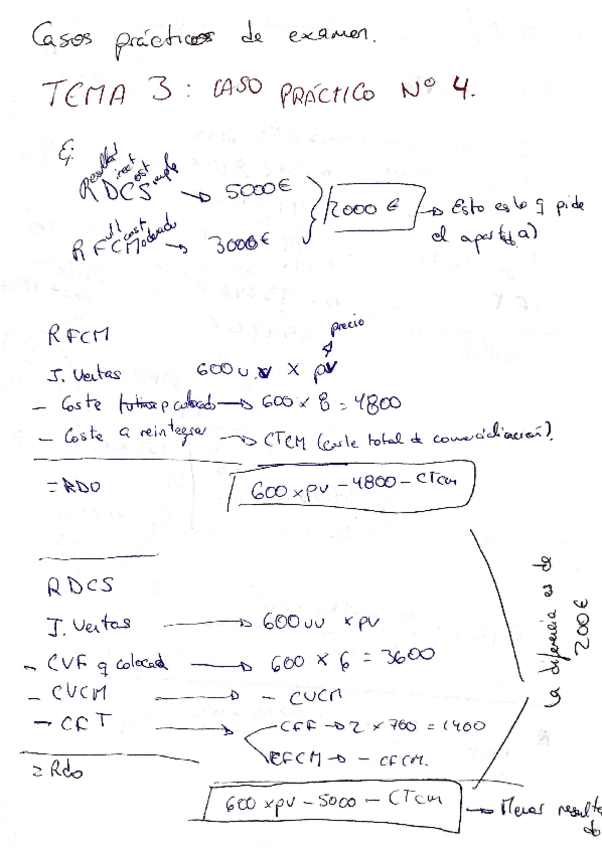 Casos prácticos de examen.
TEMA 3: CASO PRÁCTICO Nº 4.
Ej
Resultad irect ost imple
RDCS → 5000€
2000 € → Esto es lo q pide el apartado a)
ult cost oderado
RFCM → 3000€
precio
RFCM
I. Ventas 600 u.v x pv
- Coste p colocado → 600 x 8 = 4800
- Coste a reintegrar → CTCM (coste total de comercialización).
= RDO 600 x pv - 4800 - CTCM
La diferencia es de 200€
RDCS
I. Ventas → 600 uv x pv
- CVF q colocad → 600 x 6 = 3600
- CVCM → - CVCM
- CFT → CFF → 2 x 700 = 1400
CFCM → - CFCM.
= Rdo
600 x pv - 5000 - CTCM → Menos resultado